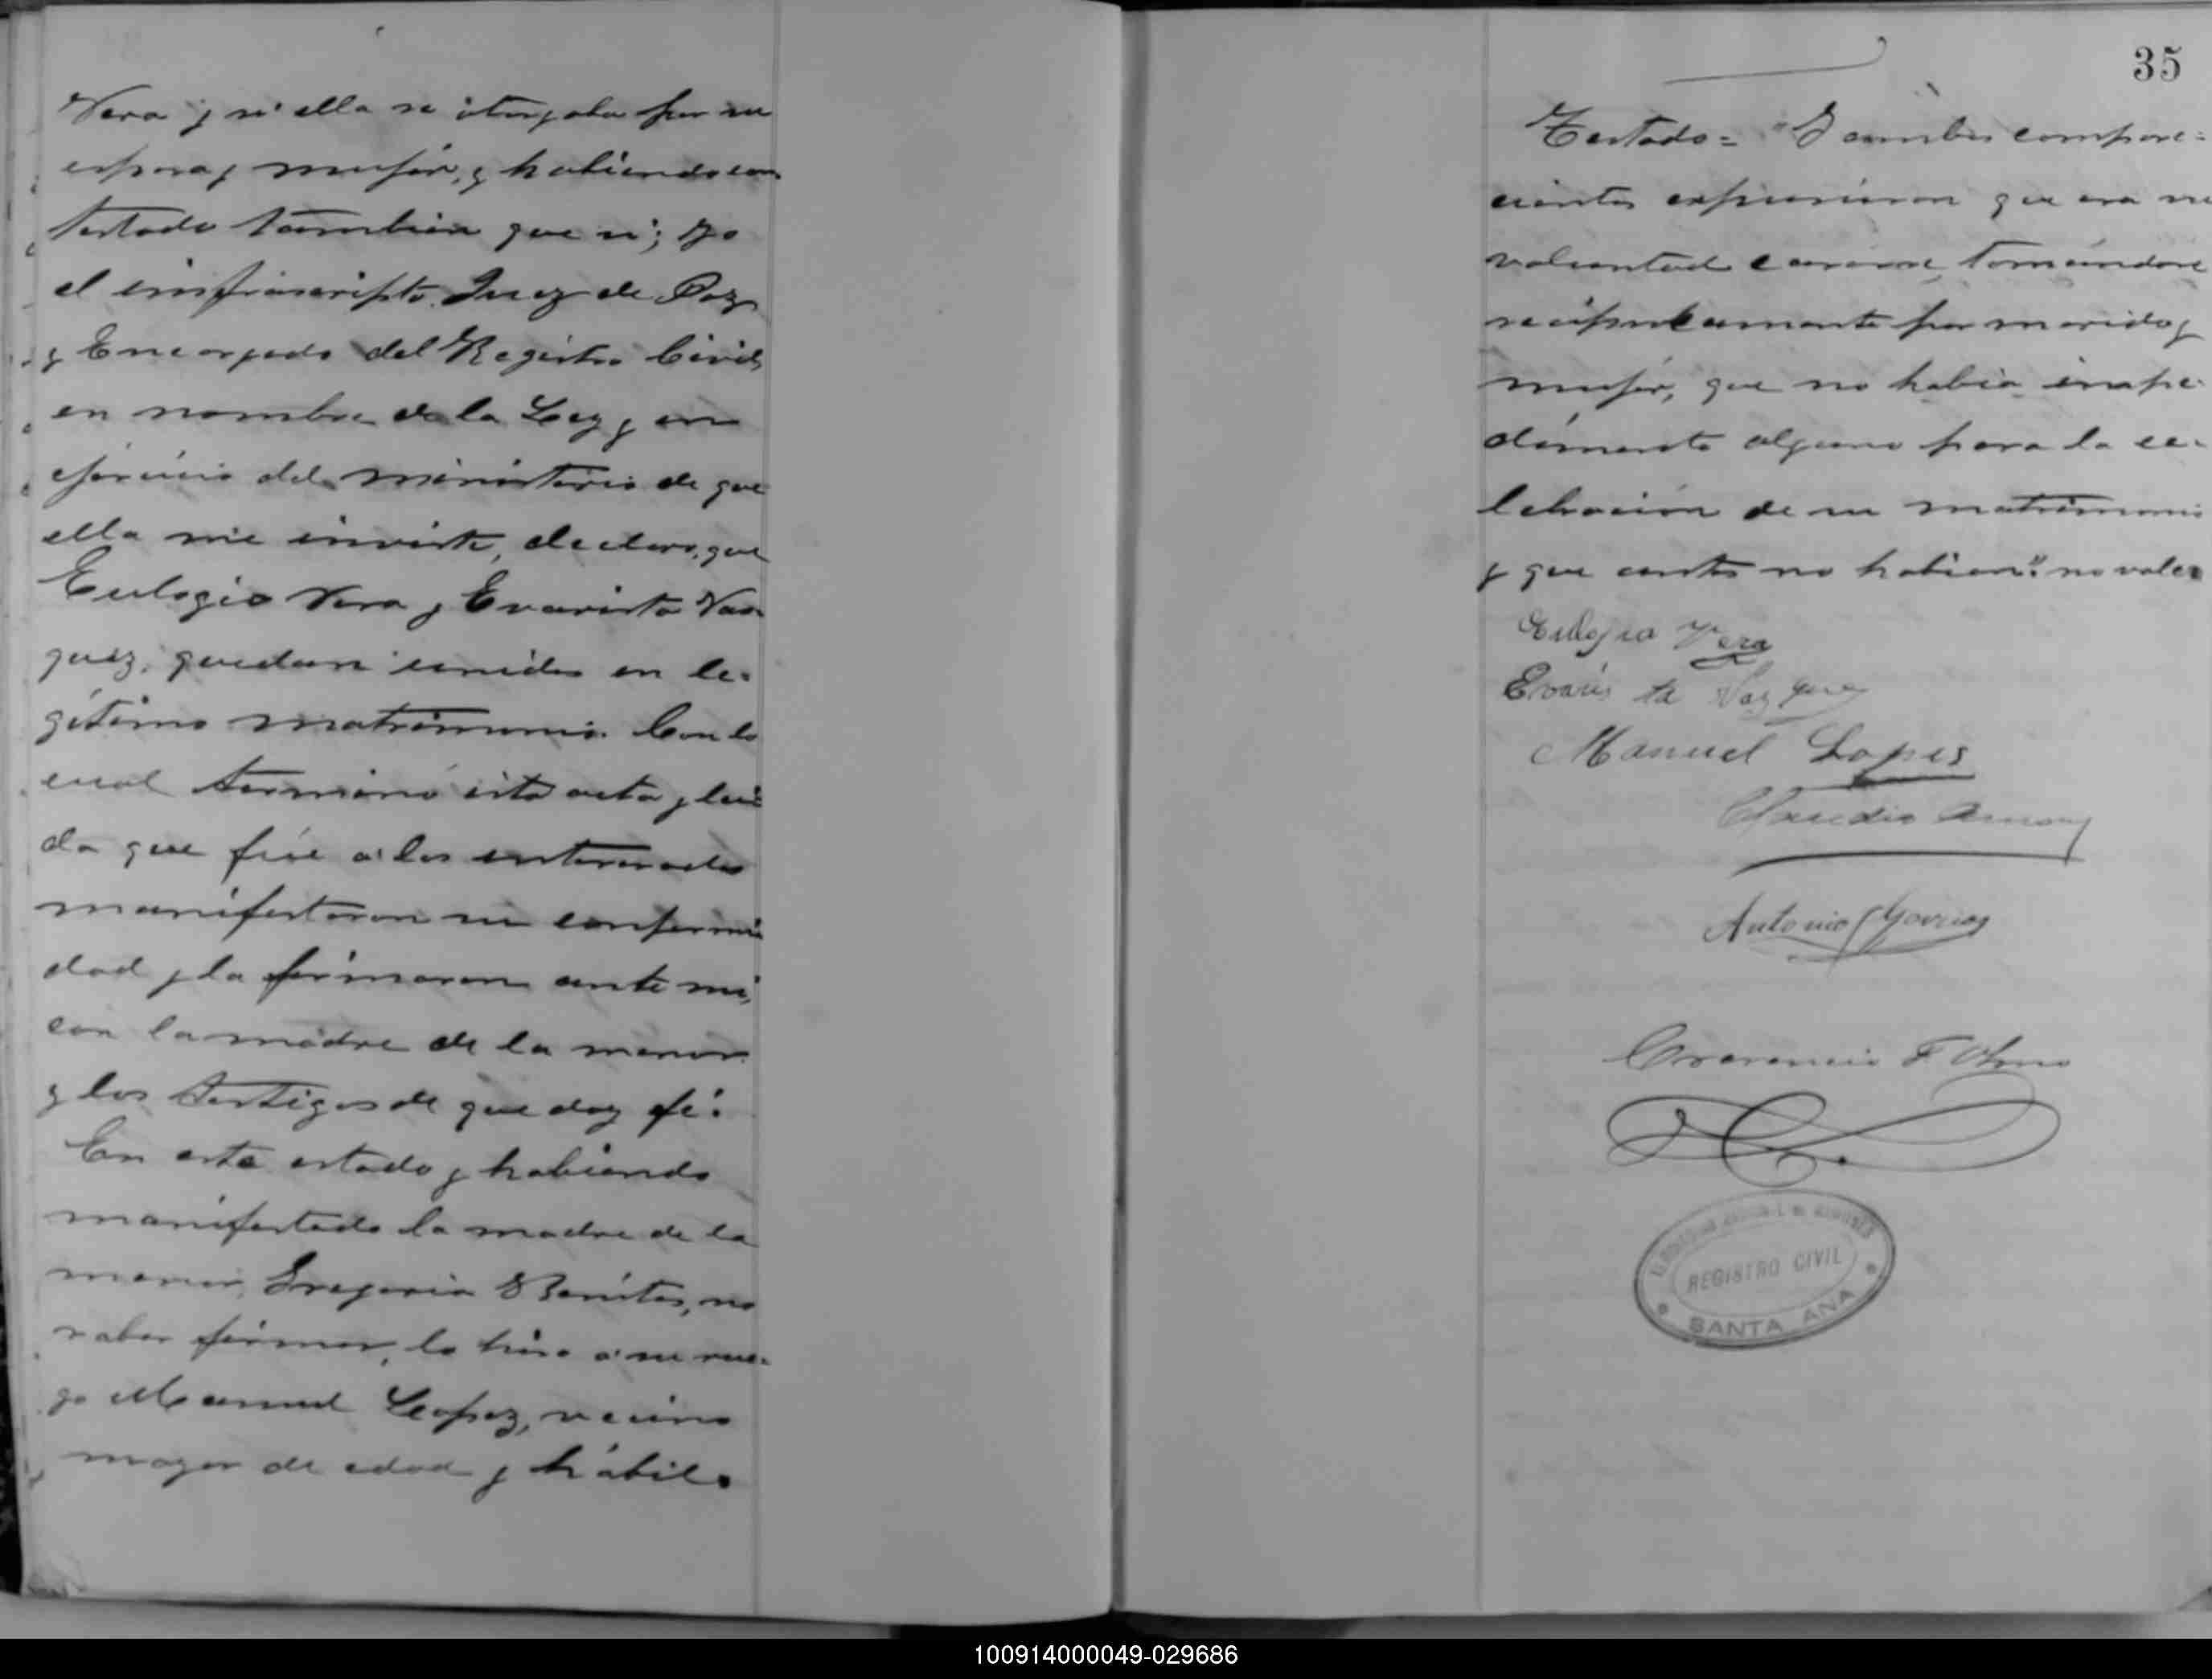 Vera y si ella se otorgaba por su
esposa y mujér, y habiendo con
testado tambien que si; yo
el infrascripto Juez de Paz
y Encargado del Registro Civil,
en nombre de la Ley y en
ejercicio del ministerio de que
ella me inviste, declaro, que
Eulogio Vera y Evarista Vas
quez, quedan unidos en le-
gítimo matrimonio. Con lo
cual terminó esta acta y leí
da que fué a los interesados
manifestaron su conformi
dad y la firmaron ante mi,
con la madre de la menor
y los testigos de que doy fé.
En este estado y habiendo
manifestado la madre de la
menor, Gregoria Benites, no
saber firmar, lo hizo a su rue-
go Manuel Lopez, vecino
mayor de edad y hábil.
35
Testado= "I ambos compare-
cientes expusieron que era su
voluntad casarse, tomándose
reciprocamente por marido y
mujér, que no había impe-
dimento alguno para la ce-
lebración de su matrimonio
y que antes no habian". no vale.
Eulogio Vera
Evaris ta Vazquez
Manuel Lopes
Claudio
Antonio
F
REGISTRO CIVIL
SANTA ANA
100914000049-029686